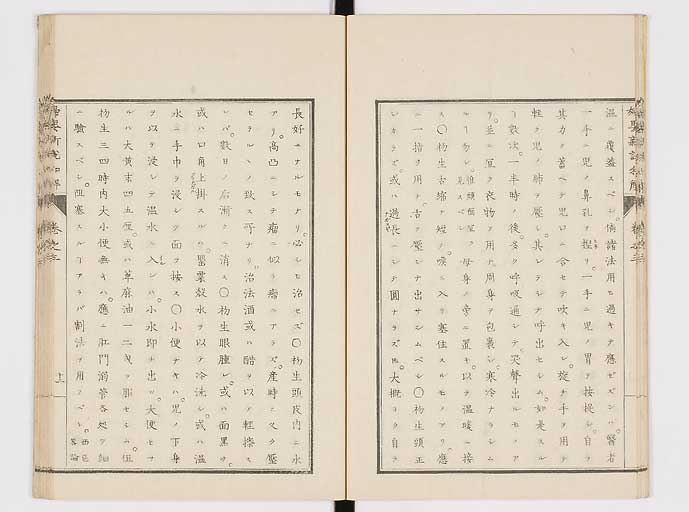 温ニ覆蓋スベシ倘諸法用ヒ過キテ應ゼズンバ醫者
一手ニ児ノ鼻孔ヲ捏リ一手ニ児ノ胃ヲ按撫シ自ラ
其力ヲ蓄ヘテ児口ニ合セテ吹キ入レ旋テ手ヲ用テ
軽ク児ノ肺ヲ壓シ其レヲシテ呼出セシム如是スル
ヿ數次一半時ノ後多ク呼吸通シテ哭聲出ルモノア
リ並ニ宜ク衣物ヲ用テ周身ヲ包裹シ寒冷ナラシム
ルヿ勿レ母身ノ旁ニ置キ以テ温暖ニ接
ス○初生舌縮ナ短ク喉ニ入リ塞住スルモノアリ應
ニ一指ヲ用テ舌ヲ壓シテ出サシムベシ○初生頭正
シカラズ或ハ過長ニシテ圓ナラズ大概ヨク自ラ
長好ニナルモナリ必シモ治セズ○初生頭皮内ニ水
アリ高凸ニシテ瘤ニ似テ瘤ニアラズ産時ニ久ク壓
セラルヽノ致ス所ナリ治法酒或ハ醋ヲ以テ軽搽ス
レバ數日ノ后漸クニ消ス○初生眼腫レ或ハ面黒ク
或ハ口角上掛スルハ罌粟殻水ヲ以テ冷洗シ或ハ温
水ニ手巾ヲ浸シテ面ヲ按ス○小便ナキハ児ノ下身
ヲ以テ浸シテ温水ニ入レバ小水即チ出ツ大便ヒナ
ルハ大黄末四五厘或ハ草麻油一二匁ヲ服セシム但
初生三四時内大小便無キハ應ニ肛門溺管各処ヲ細
ニ驗スベシ阻塞スルヿアラバ割法ヲ用フベシ